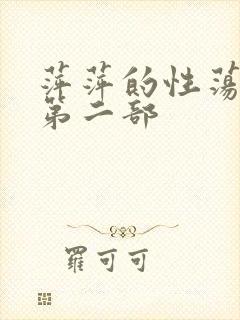 萍萍的性荡
第二部
羅可可